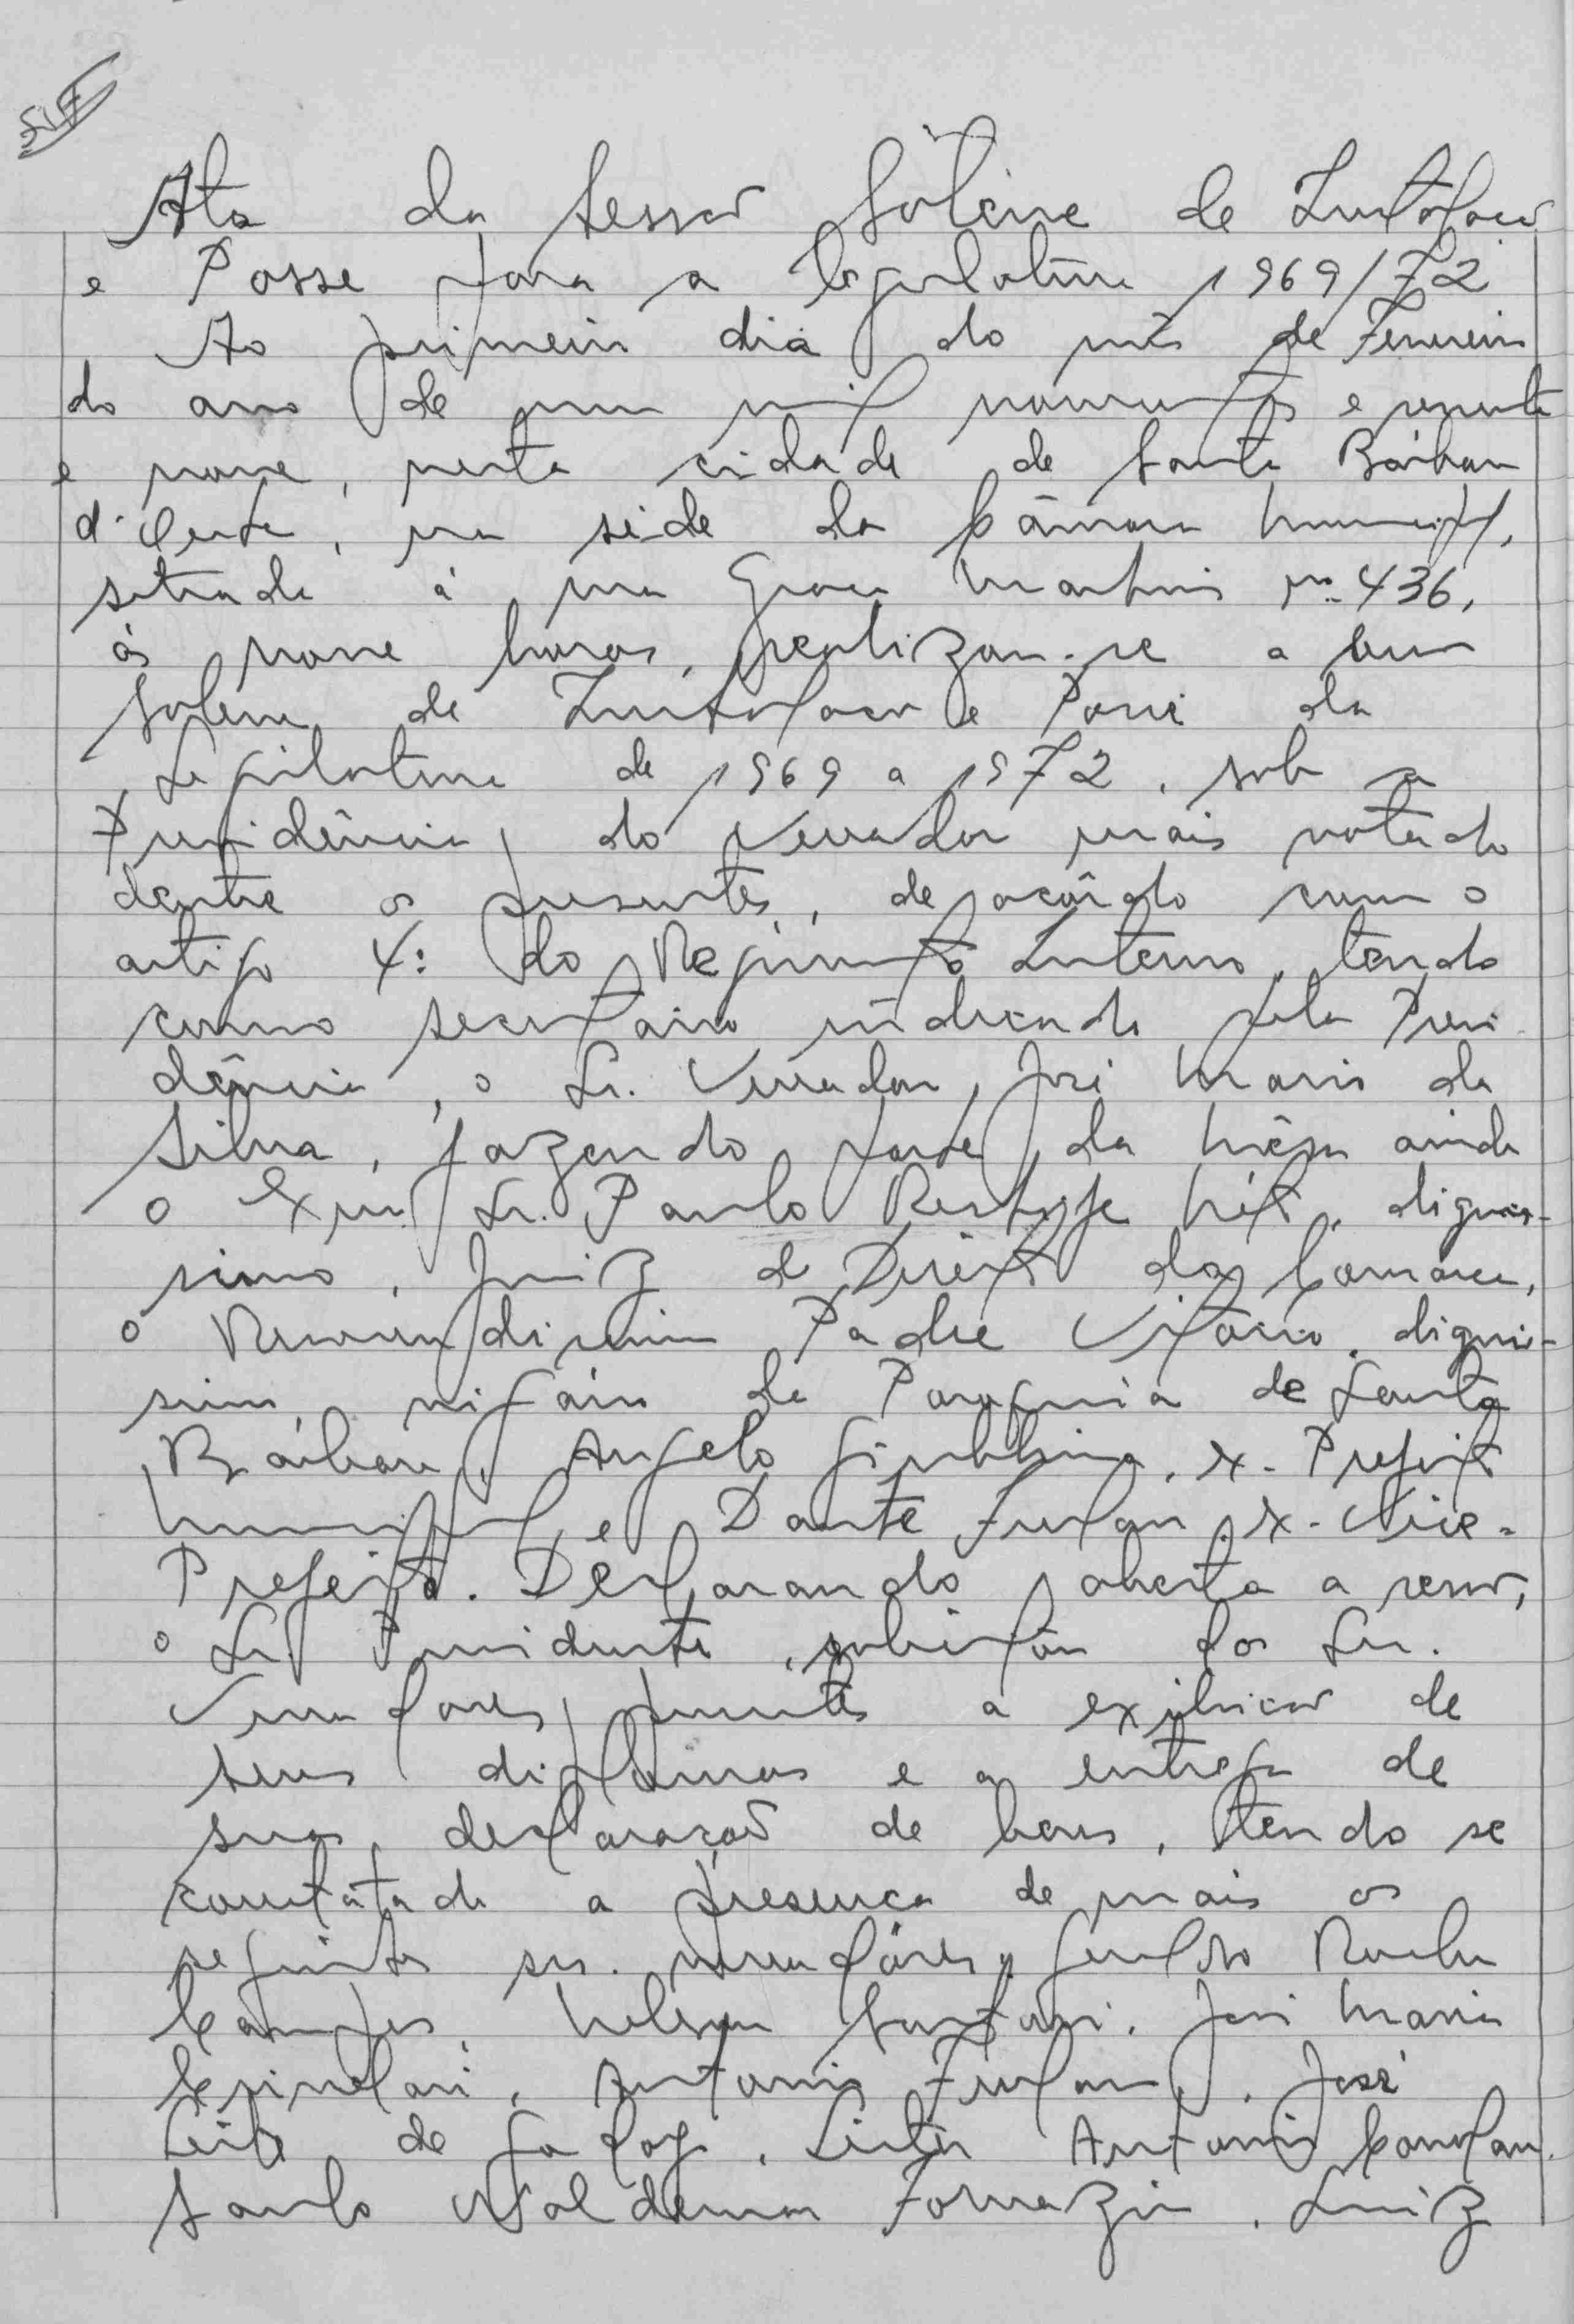 Ata da Sessão Solene de Instalação
e Posse para a legislatura 1969/72
Ao primeiro dia do mês de Fevereiro
do ano de um mil novecentos e sessenta
e nove, nesta cidade de Santa Bárbara
d'Oeste, na séde da Câmara Municipal,
situada à rua Graça Martins nº 436,
ás nove horas, realizou-se a
Solene de Instalação e Posse da
Legislatura de 1969 a 1972, sob a
Presidência do Vereador mais votado
dentre os presentes, de acôrdo com o
artigo 4º do Regimento Interno, tendo
como secretário indicado pela Presi-
dência, o Sr. Vereador José Maria da
Silva, fazendo parte da Mêsa ainda
o Exmo Sr. Paulo , dignis-
simo Juiz de Direito da Comarca,
o Reverendissimo Padre Vitório, dignis-
simo vigário da Paroquia de Santa
Bárbara, Angelo Giubbina, ex-Prefeito
Municipal e Dante Furlan, ex-Vice-
Prefeito. Declarando aberta a sessão,
o Sr. Presidente, solicitou dos Srs.
Vereadores presentes a exibição de
seus diplomas e a entrega de
suas declaração de bens, tendo se
constatado a presença de mais os
seguintes srs. vereadôres, Geraldo Rocha
Campos, Nelson . José Maria
, Antonio Furlan, José
Leite de Godoy, Antonio
Waldemar Fornazin, Luiz